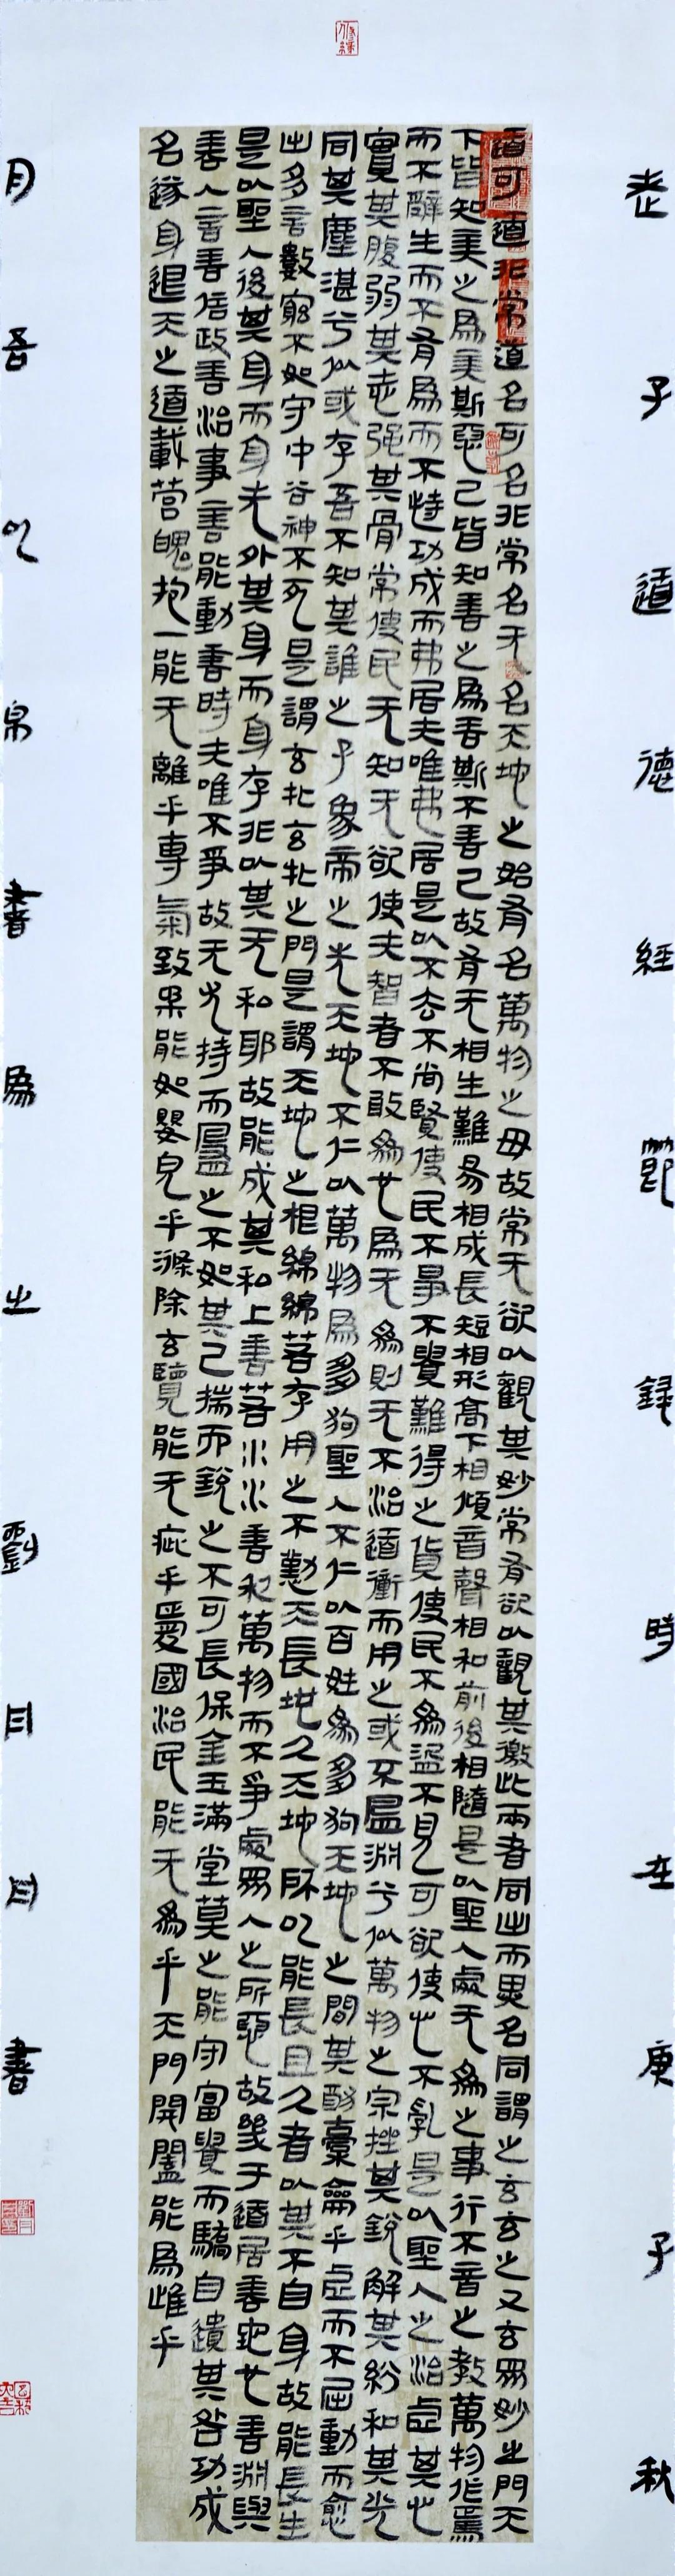 老子道德經節錄時在庚子秋
道可道非常道名可名非常名无名天地之始有名萬物之母故常无欲以觀其妙常有欲以觀其徼此兩者同出而異名同謂之玄玄之又玄眾妙之門天
下皆知美之爲美斯惡已皆知善之爲善斯不善已故有无相生難易相成長短相形高下相傾音聲相和前後相隨是以聖人處无爲之事行不言之教萬物作焉
而不辭生而不有爲而不恃功成而弗居夫唯弗居是以不去不尚賢使民不爭不貴難得之貨使民不爲盜不見可欲使心不亂是以聖人之治虛其心
實其腹弱其志強其骨常使民无知无欲使夫智者不敢爲也爲无爲則无不治道衝而用之或不盈淵兮似萬物之宗挫其銳解其紛和其光
同其塵湛兮似或存吾不知其誰之子象帝之先天地不仁以萬物爲芻狗聖人不仁以百姓爲芻狗天地之間其猶橐籥乎虛而不屈動而愈
出多言數窮不如守中谷神不死是謂玄牝玄牝之門是謂天地之根綿綿若存用之不勤天長地久天地所以能長且久者以其不自身故能長生
是以聖人後其身而身先外其身而身存非以其无私耶故能成其私上善若水水善利萬物而不爭處眾人之所惡故幾于道居善地心善淵與
善人言善信政善治事善能動善時夫唯不爭故无尤持而盈之不如其已揣而銳之不可長保金玉滿堂莫之能守富貴而驕自遺其咎功成
名遂身退天之道載營魄抱一能无離乎專氣致柔能如嬰兒乎滌除玄覽能无疵乎愛國治民能无爲乎天門開闔能爲雌乎
月吾以帛書爲之劉月月書